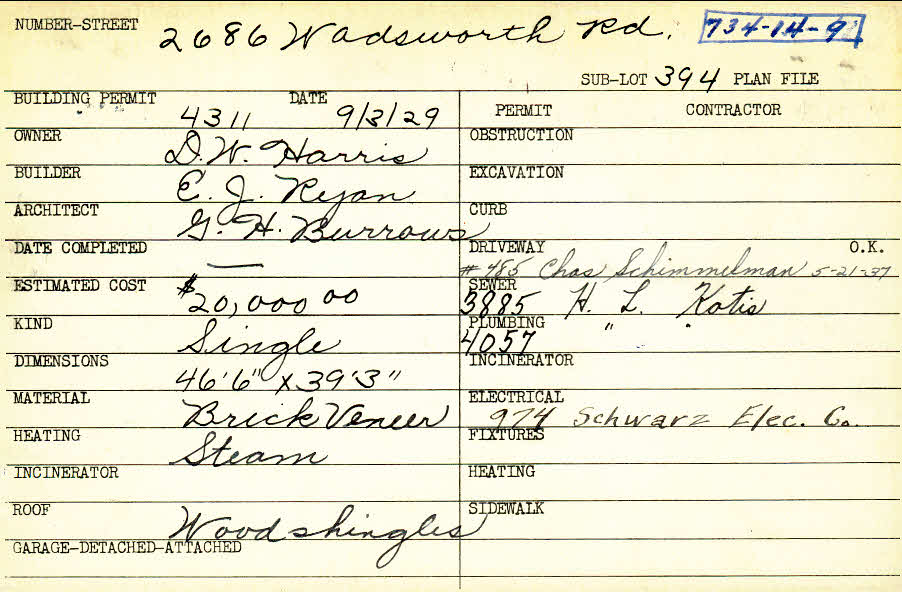 NUMBER-STREET 2686 Wadsworth Rd. 734-14-9
SUB-LOT 394 PLAN FILE
BUILDING PERMIT 4311 DATE 9/3/29
OWNER D.W. Harris
BUILDER E. J. Ryan
ARCHITECT G. H. Burrows
DATE COMPLETED —
ESTIMATED COST $20,000 00
KIND Single
DIMENSIONS 46'6" x 39'3"
MATERIAL Brick Veneer
HEATING Steam
INCINERATOR
ROOF Wood shingles
GARAGE-DETACHED-ATTACHED
PERMIT CONTRACTOR
OBSTRUCTION
EXCAVATION
CURB
DRIVEWAY O.K.
# 485 Chas Schimmelman 5-21-37
SEWER
3885 H. L. Kotis
PLUMBING
4057 " "
INCINERATOR
ELECTRICAL
974 Schwarz Elec. Co.
FIXTURES
HEATING
SIDEWALK